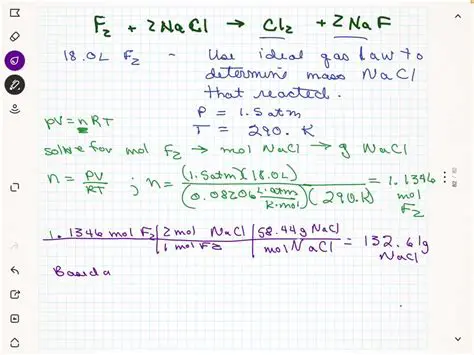 F₂ + 2NaCl → Cl₂ + 2NaF
18.0L F₂ - Use ideal gas law to
determine mass NaCl
that reacted.
P = 1.5atm
PV=nRT
T = 290. K
solve for mol F₂ → mol NaCl → g NaCl
n = PV/RT ; n = (1.5atm)(18.0L)/(0.08206 L·atm/K·mol)(290.K) = 1.1346 mol F₂
1.1346 mol F₂ | 2 mol NaCl / 1 mol F₂ | 58.44g NaCl / mol NaCl = 132.61g NaCl
Based a